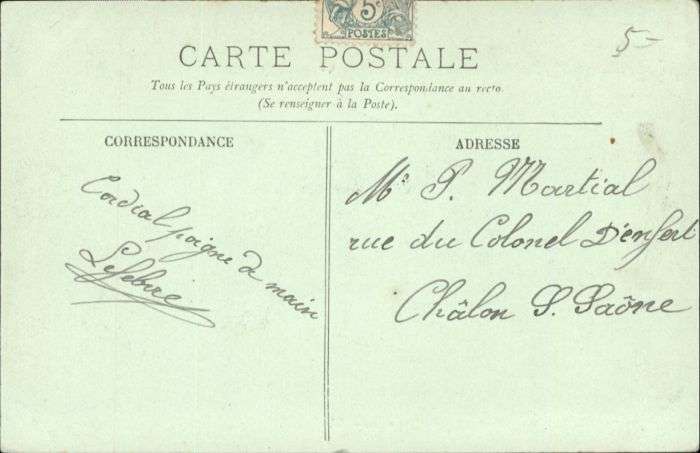 5c
POSTES
5-
CARTE POSTALE
Tous les Pays étrangers n'acceptent pas la Correspondance au recto.
(Se renseigner à la Poste).
CORRESPONDANCE
Cordial poigne de main
Lefebvre
ADRESSE
Mr P. Martial
rue du Colonel Denfert
Châlon S. Saône